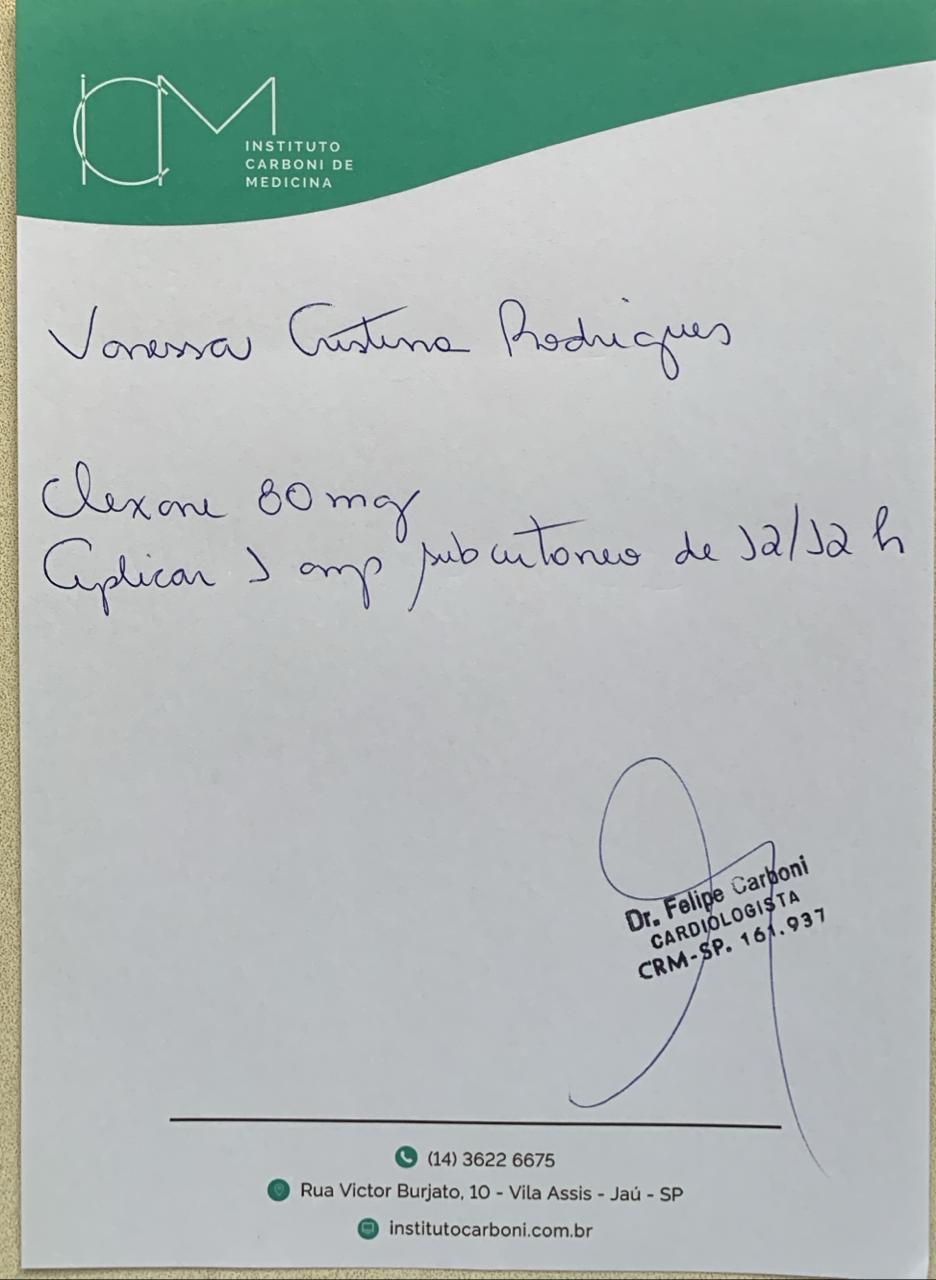 ICM
INSTITUTO
CARBONI DE
MEDICINA
Vanessa Cristina Rodrigues
Clexane 80 mg
Aplicar 1 amp subcutaneo de 12/12 h
Dr. Felipe Carboni
CARDIOLOGISTA
CRM-SP. 161.937
(14) 3622 6675
Rua Victor Burjato, 10 - Vila Assis - Jaú - SP
institutocarboni.com.br